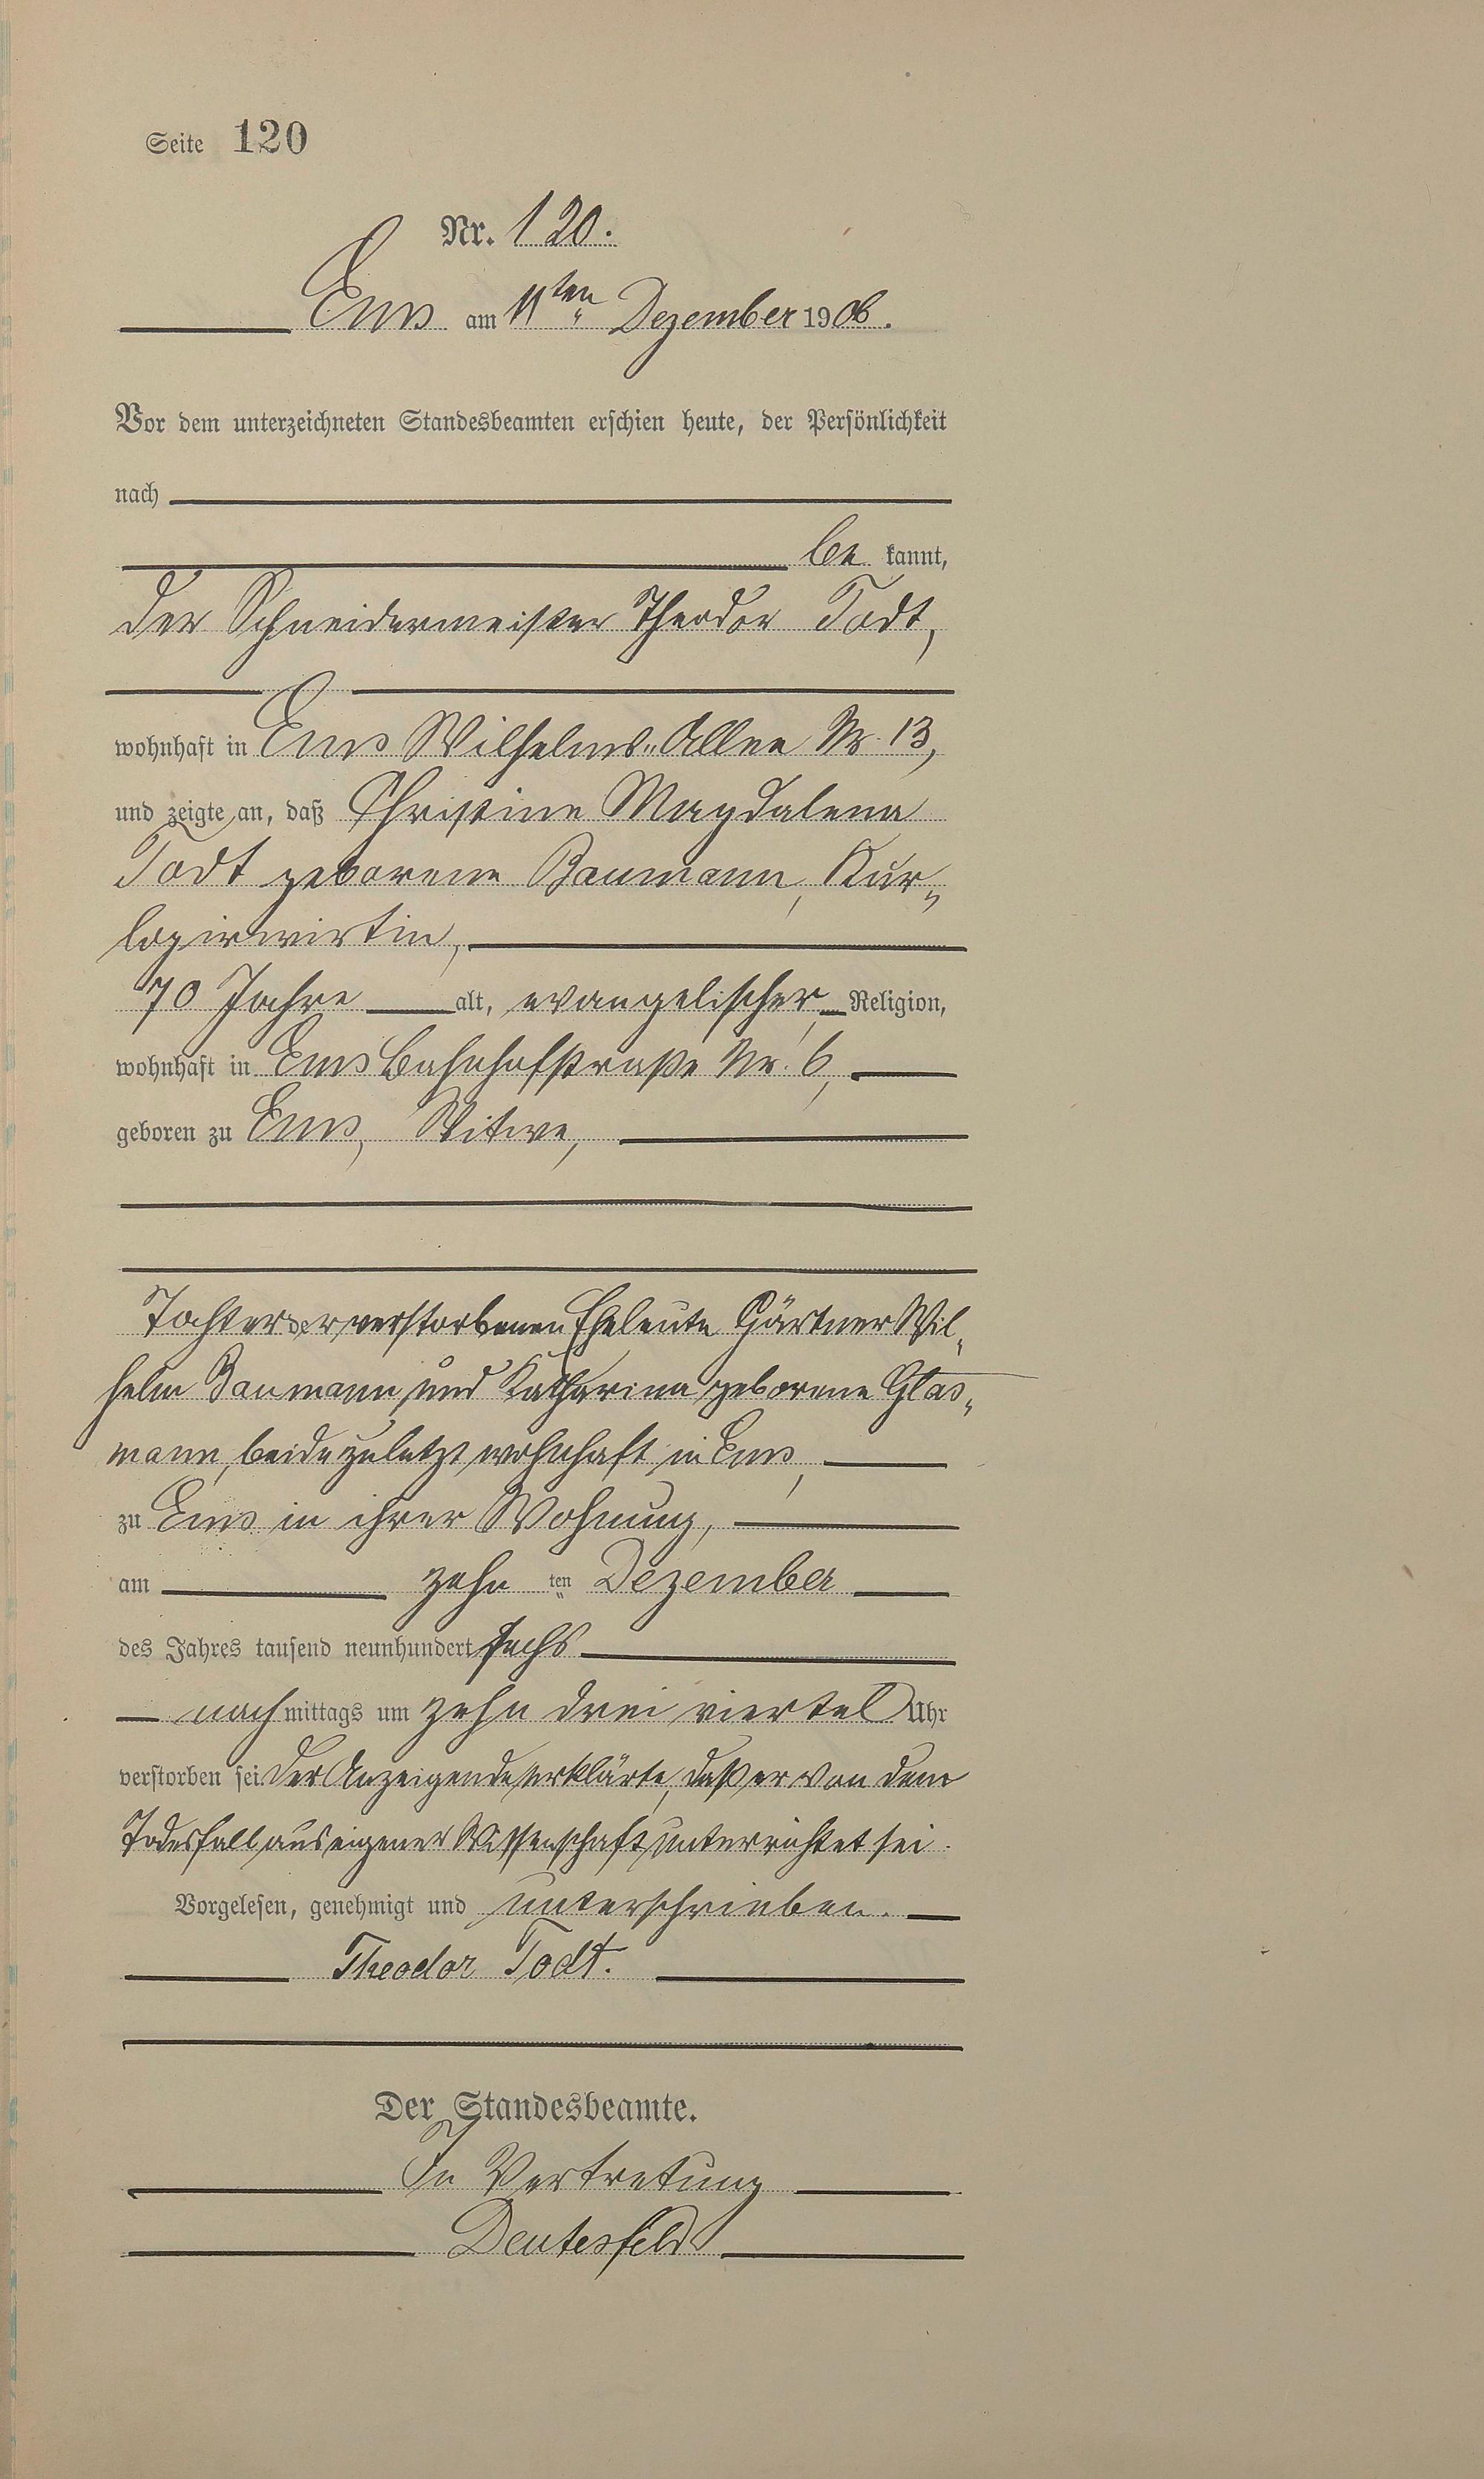 Seite 120
Nr. 120.
Ems am 11ten Dezember 1906.
Vor dem unterzeichneten Standesbeamten erschien heute, der Persönlichkeit
nach
be kannt,
der Schneidermeister Theodor Todt,
wohnhaft in Ems Wilhelms-Allee Nr. 13,
und zeigte an, daß Christine Magdalena
Todt geborene Baumann, Kur-
logirwirtin,
70 Jahre alt, evangelischer Religion,
wohnhaft in Ems Bahnhofstraße Nr. 6,
geboren zu Ems, Witwe,
Tochter der verstorbenen Eheleute Gärtner Wil-
helm Baumann und Katharina geborene Glas-
mann, beide zuletzt wohnhaft in Ems,
zu Ems in ihrer Wohnung,
am zehn ten Dezember
des Jahres tausend neunhundert sechs
nach mittags um zehn drei viertel Uhr
verstorben sei. Der Anzeigende erklärte, daß er von dem
Todesfall aus eigener Wissenschaft unterrichtet sei.
Vorgelesen, genehmigt und unterschrieben.
Theodor Todt.
Der Standesbeamte.
In Vertretung
Deutesfeld